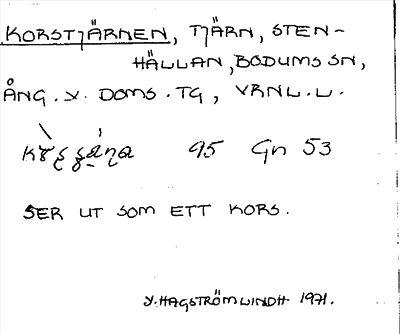 KORSTJÄRNEN, TJÄRN, STEN-
HÄLLAN, BODUMS SN,
ÅNG. V. DOMS. TG, VRNL. L.
95 Gn 53
SER UT SOM ETT KORS.
V. HAGSTRÖM LINDH 1971.